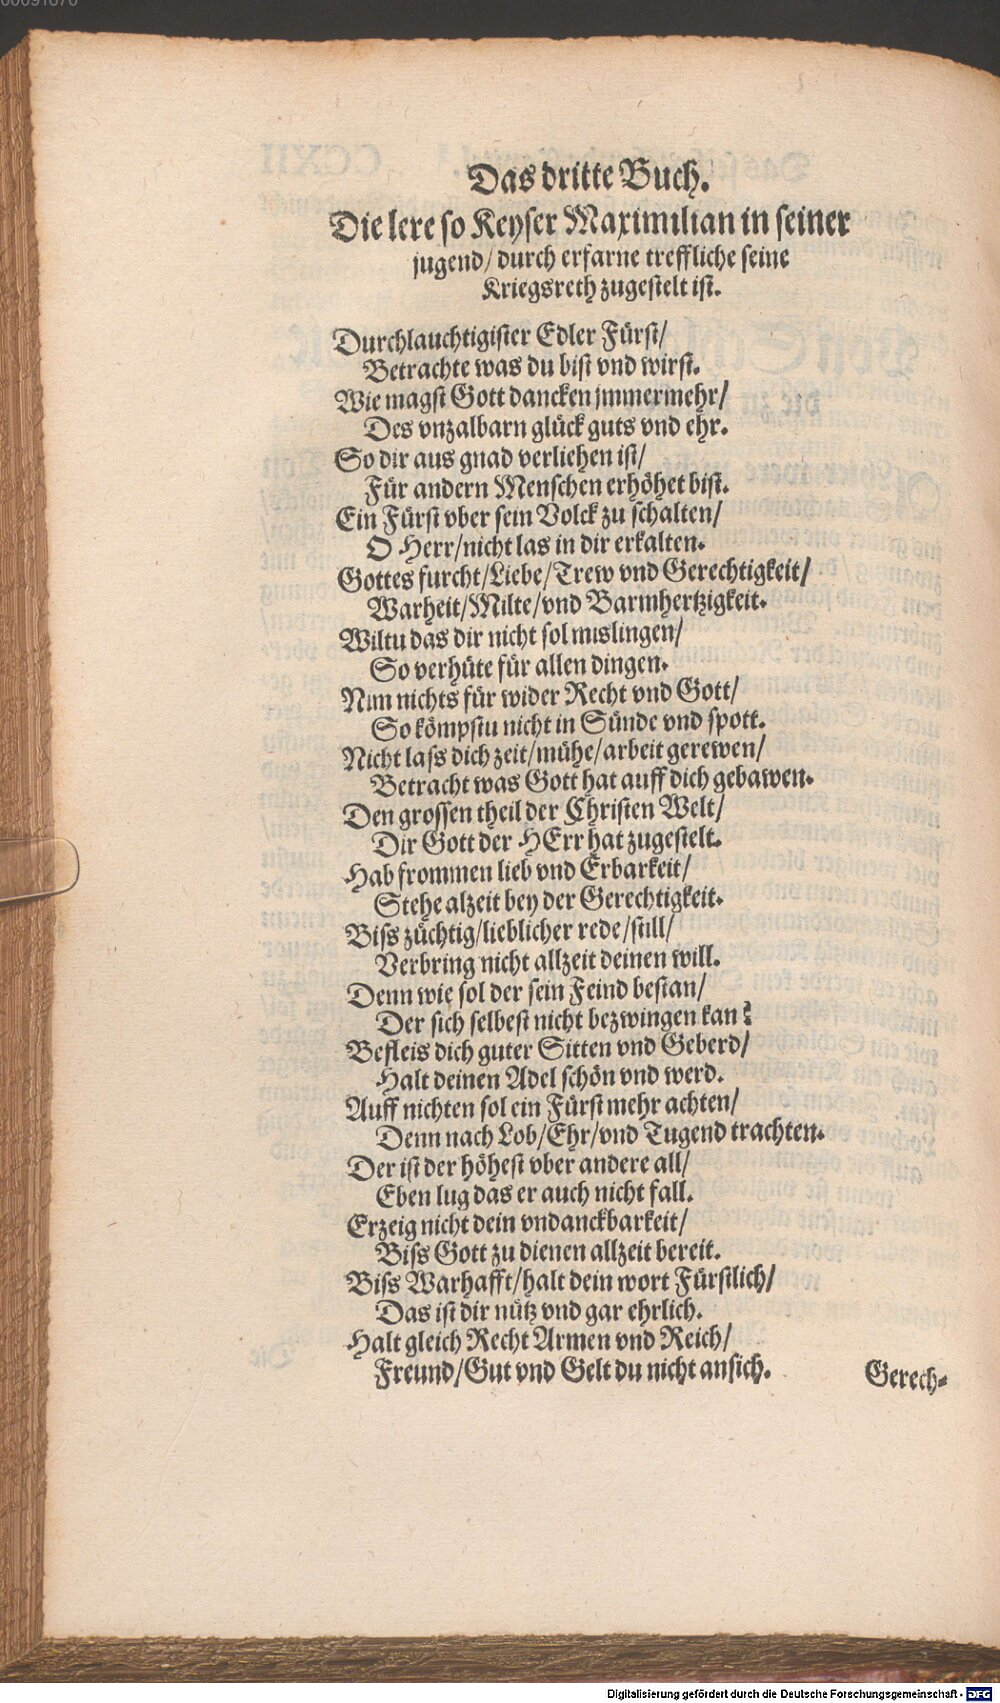 Das dritte Buch.
Die lere so Keyser Maximilian in seiner
jugend/ durch erfarne treffliche seine
Kriegsreth zugestelt ist.
Durchlauchtigister Edler Fürst/
Betrachte was du bist vnd wirst.
Wie magst Gott dancken jmmermehr/
Des vnzalbarn glück guts vnd ehr.
So dir aus gnad verliehen ist/
Für andern Menschen erhöhet bist.
Ein Fürst vber sein Volck zu schalten/
O Herr/nicht las in dir erkalten.
Gottes furcht/Liebe/Trew vnd Gerechtigkeit/
Warheit/Milte/vnd Barmhertzigkeit.
Wiltu das dir nicht sol mislingen/
So verhüte für allen dingen.
Nim nichts für wider Recht vnd Gott/
So kömpstu nicht in Sünde vnd spott.
Nicht lass dich zeit/mühe/arbeit gerewen/
Betracht was Gott hat auff dich gebawen.
Den grossen theil der Christen Welt/
Dir Gott der HErr hat zugestelt.
Hab frommen lieb vnd Erbarkeit/
Stehe alzeit bey der Gerechtigkeit.
Biss züchtig/lieblicher rede/still/
Verbring nicht allzeit deinen will.
Denn wie sol der sein Feind bestan/
Der sich selbest nicht bezwingen kan?
Befleis dich guter Sitten vnd Geberd/
Halt deinen Adel schön vnd werd.
Auff nichten sol ein Fürst mehr achten/
Denn nach Lob/Ehr/vnd Tugend trachten.
Der ist der höhest vber andere all/
Eben lug das er auch nicht fall.
Erzeig nicht dein vndanckbarkeit/
Biss Gott zu dienen allzeit bereit.
Biss Warhafft/halt dein wort Fürstlich/
Das ist dir nütz vnd gar ehrlich.
Halt gleich Recht Armen vnd Reich/
Freund/Gut vnd Gelt du nicht ansich.
Gerech-
Digitalisierung gefördert durch die Deutsche Forschungsgemeinschaft - DFG